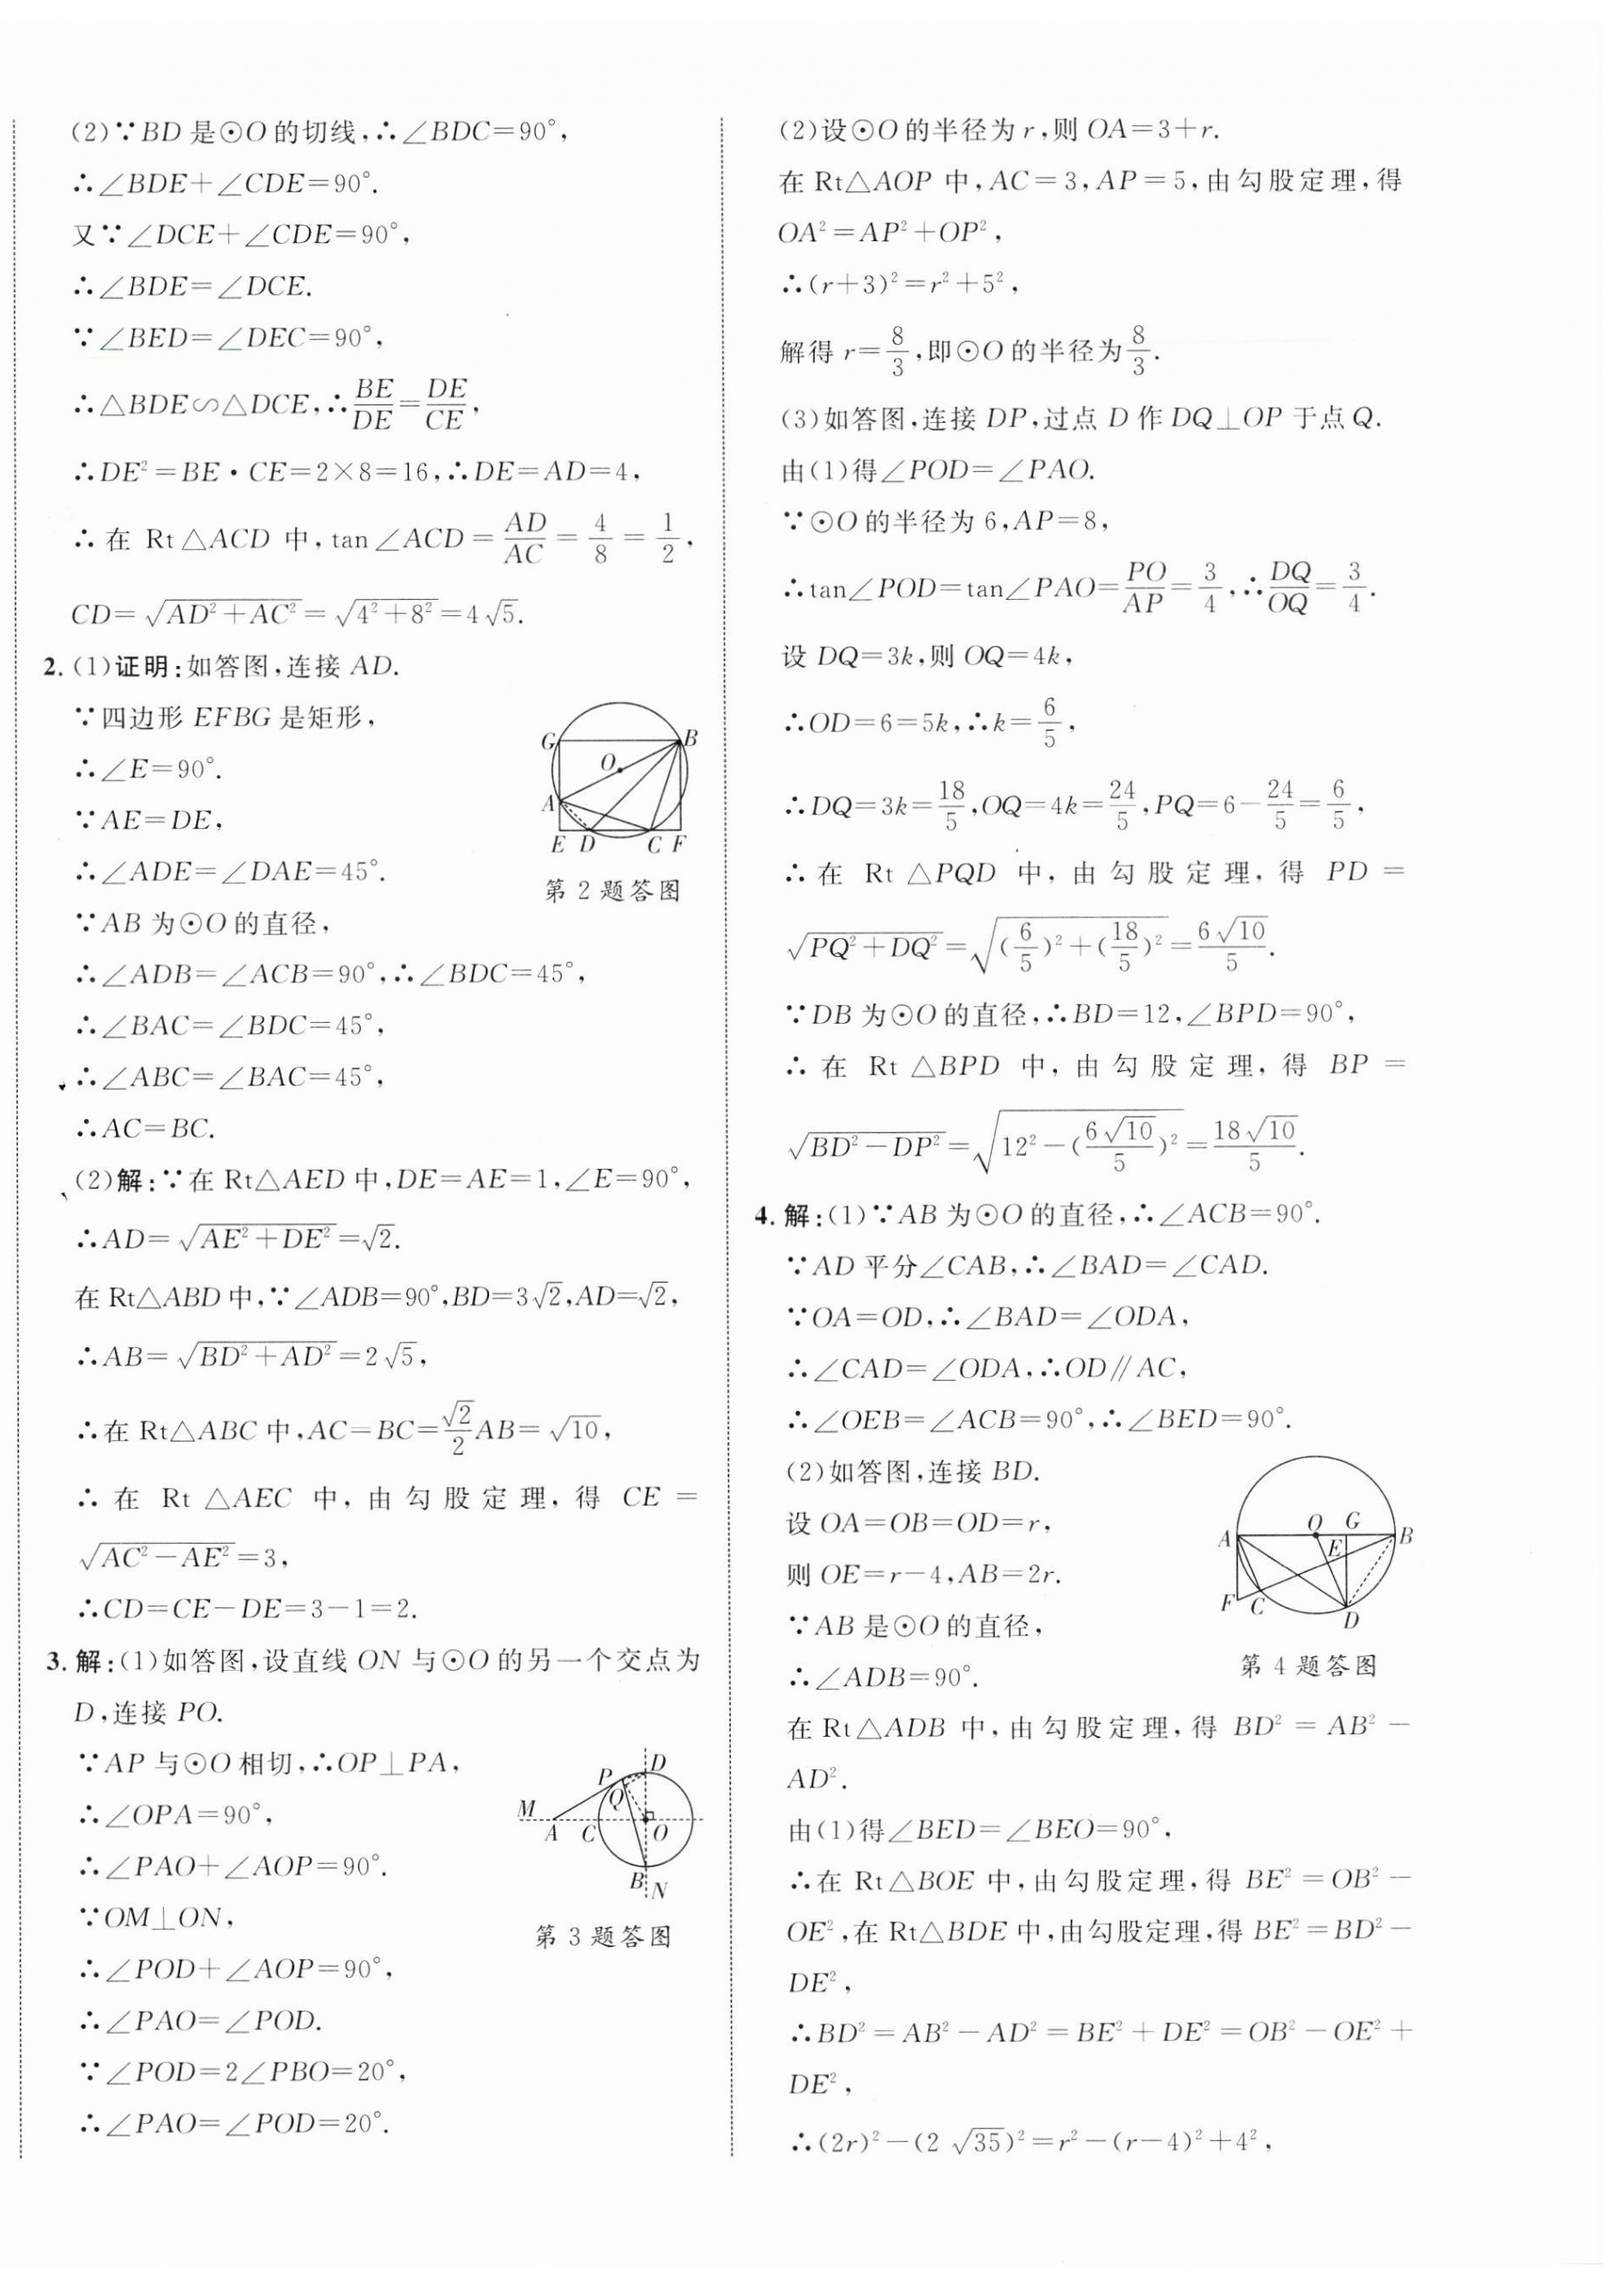 (2)∵BD是⊙O的切线,∴∠BDC=90°,
∴∠BDE+∠CDE=90°.
又∵∠DCE+∠CDE=90°,
∴∠BDE=∠DCE.
∵∠BED=∠DEC=90°,
∴△BDE∽△DCE,∴BE/DE=DE/CE,
∴DE²=BE·CE=2×8=16,∴DE=AD=4,
∴在 Rt△ACD 中,tan∠ACD=AD/AC=4/8=1/2,
CD=√(AD²+AC²)=√(4²+8²)=4√5.
2.(1)证明:如答图,连接AD.
∵四边形EFBG是矩形,
∴∠E=90°.
∵AE=DE,
∴∠ADE=∠DAE=45°.
∵AB为⊙O的直径,
∴∠ADB=∠ACB=90°,∴∠BDC=45°,
∴∠BAC=∠BDC=45°,
∴∠ABC=∠BAC=45°,
∴AC=BC.
G B
O
A
E D C F
第2题答图
(2)解:∵在Rt△AED中,DE=AE=1,∠E=90°,
∴AD=√(AE²+DE²)=√2.
在Rt△ABD中,∵∠ADB=90°,BD=3√2,AD=√2,
∴AB=√(BD²+AD²)=2√5,
∴在Rt△ABC中,AC=BC=√2/2AB=√10,
∴在 Rt△AEC 中,由勾股定理,得 CE=
√(AC²-AE²)=3,
∴CD=CE-DE=3-1=2.
3.解:(1)如答图,设直线ON与⊙O的另一个交点为
D,连接PO.
∵AP与⊙O相切,∴OP⊥PA,
∴∠OPA=90°,
∴∠PAO+∠AOP=90°.
∵OM⊥ON,
∴∠POD+∠AOP=90°,
∴∠PAO=∠POD.
∵∠POD=2∠PBO=20°,
∴∠PAO=∠POD=20°.
P D
Q
M
A C O
B N
第3题答图
(2)设⊙O的半径为r,则OA=3+r.
在Rt△AOP中,AC=3,AP=5,由勾股定理,得
OA²=AP²+OP²,
∴(r+3)²=r²+5²,
解得r=8/3,即⊙O的半径为8/3.
(3)如答图,连接DP,过点D作DQ⊥OP于点Q.
由(1)得∠POD=∠PAO.
∵⊙O的半径为6,AP=8,
∴tan∠POD=tan∠PAO=PO/AP=3/4,∴DQ/OQ=3/4.
设DQ=3k,则OQ=4k,
∴OD=6=5k,∴k=6/5,
∴DQ=3k=18/5,OQ=4k=24/5,PQ=6-24/5=6/5,
∴在 Rt△PQD 中,由勾股定理,得 PD=
√(PQ²+DQ²)=√((6/5)²+(18/5)²)=6√10/5.
∵DB为⊙O的直径,∴BD=12,∠BPD=90°,
∴在 Rt△BPD 中,由勾股定理,得 BP=
√(BD²-DP²)=√(12²-(6√10/5)²)=18√10/5.
4.解:(1)∵AB为⊙O的直径,∴∠ACB=90°.
∵AD平分∠CAB,∴∠BAD=∠CAD.
∵OA=OD,∴∠BAD=∠ODA,
∴∠CAD=∠ODA,∴OD∥AC,
∴∠OEB=∠ACB=90°,∴∠BED=90°.
(2)如答图,连接BD.
设OA=OB=OD=r,
则OE=r-4,AB=2r.
∵AB是⊙O的直径,
∴∠ADB=90°.
O G
A B
E
F C
D
第4题答图
在Rt△ADB中,由勾股定理,得 BD²=AB²-
AD².
由(1)得∠BED=∠BEO=90°,
∴在Rt△BOE中,由勾股定理,得 BE²=OB²-
OE²,在Rt△BDE中,由勾股定理,得BE²=BD²-
DE²,
∴BD²=AB²-AD²=BE²+DE²=OB²-OE²+
DE²,
∴(2r)²-(2√35)²=r²-(r-4)²+4²,